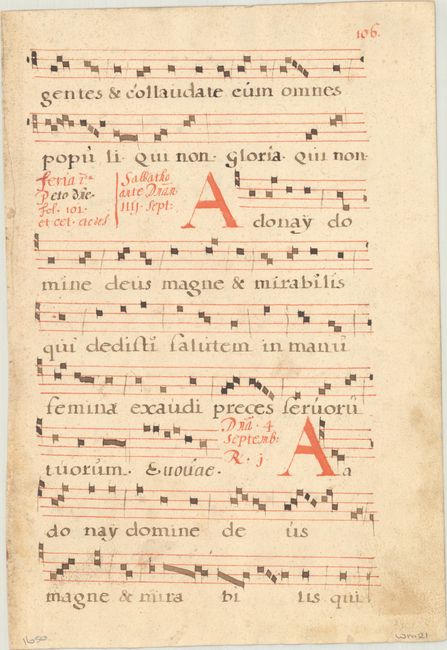 106.
gentes & collaudate eūm omnes
popū li. Qui non. gloria. Qui non.
feria 1ª
peto dñe.
fol. 101.
et cet. cicles
Sabbatho
ante Dnam
IIIJ. Sept:
A donaÿ do
mine deus magne & mirabilis
qui dedisti salutem in manū
femina exaudi preces seruorū
tuorum. Euouae.
Dnã. 4
Septemb:
R. j
A a
do naÿ domine de us
magne & mira bi lis qui
1650
wm21